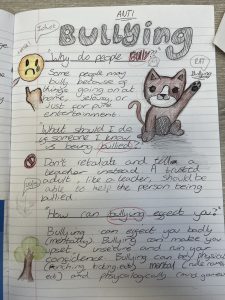 ANTI
BULLYING
"Why do people Bully?"
Some people may
bully because of
things going on at
home,
just for pure
entertainment
What should I do
is someone I know
is being bullied?
Don't retaliate and tell a
teacher instead. A trusted
adult, like a teacher, should be
able to help the person being
bullied
"How can bullying effect you?"
Bullying can effect you badly
(mentally). Bullying can make you
upset, insecure and ruin your
confidence. Bullying can be physical
(punching, kicking, etc), mental
and